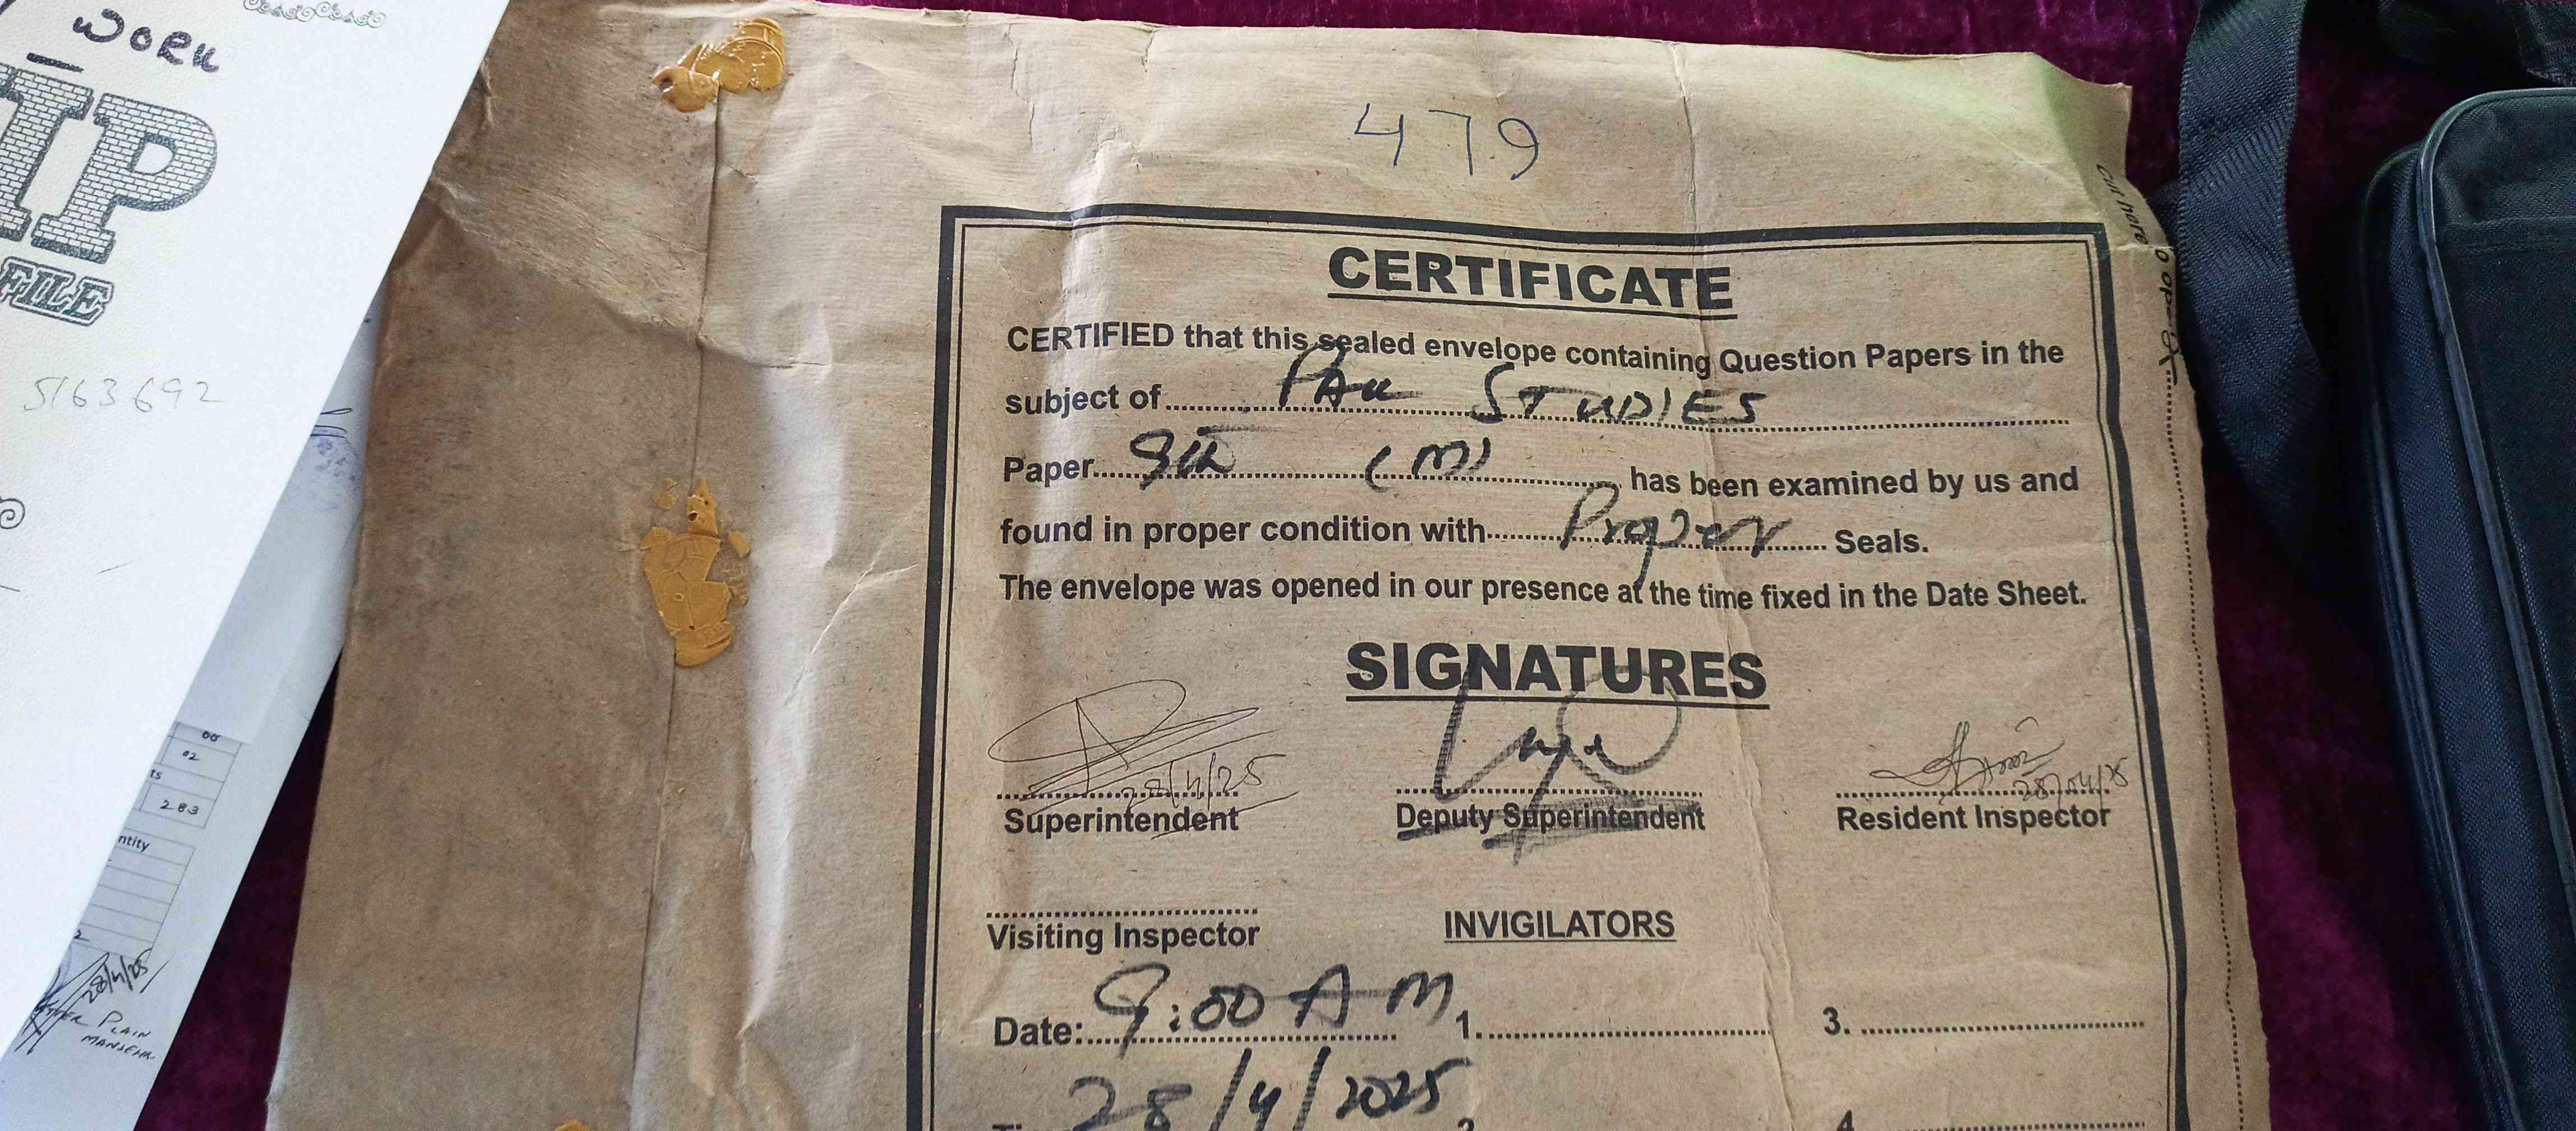 WORK
IP
FILE
5163692
00
02
ts
283
ntity
28/4/25
PLAIN
MANSEHR
479
Cut here to open
CERTIFICATE
CERTIFIED that this sealed envelope containing Question Papers in the
subject of Pak STUDIES
Paper 9th (M) has been examined by us and
found in proper condition with Proper Seals.
The envelope was opened in our presence at the time fixed in the Date Sheet.
SIGNATURES
28/4/25 28/04/25
Superintendent Deputy Superintendent Resident Inspector
Visiting Inspector INVIGILATORS
Date: 9:00 AM 1. 3.
28/4/2025 2. 4.